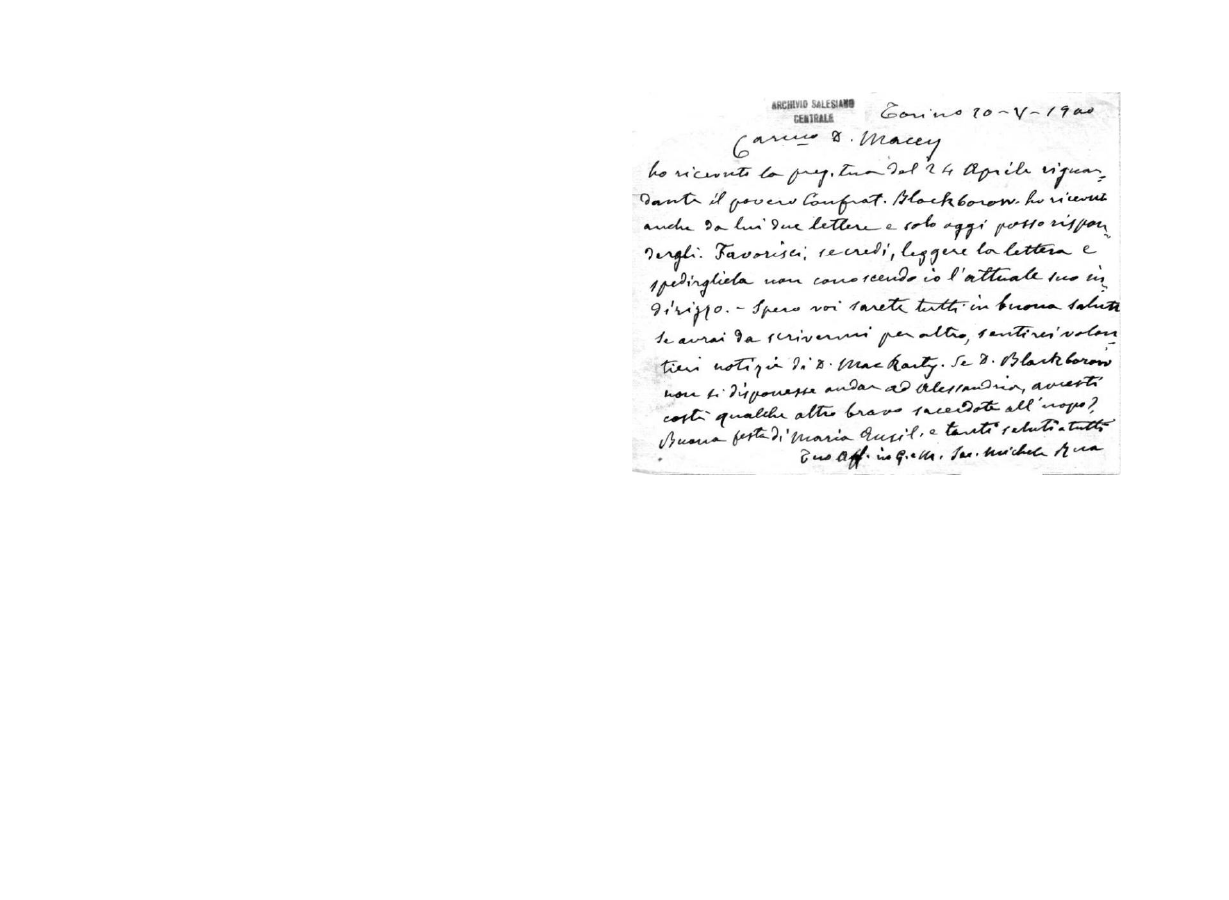 ARCHIVIO SALESIANO
CENTRALE
Torino 20-V-1900
Carmo D. Macey
ho ricevuto la preg. tua del 24 Aprile riguar=
dante il povero Confrat. Blackborow. ho ricevuto
anche da lui due lettere e solo oggi posso rispon=
dergli. Favorisci, se credi, leggere la lettera e
spedirgliela non conoscendo io l'attuale suo in=
dirizzo. - Spero voi sarete tutti in buona salute
Se avrai da scrivermi per altro, sentirei volon=
tieri notizie di D. MacKarty. Se D. Blackborow
non si disponesse andar ad Alessandria, avresti
costì qualche altro bravo sacerdote all'uopo?
Buona festa di Maria Ausil. e tanti saluti a tutti
Tuo Aff. in G. e M. Sac. Michele Rua